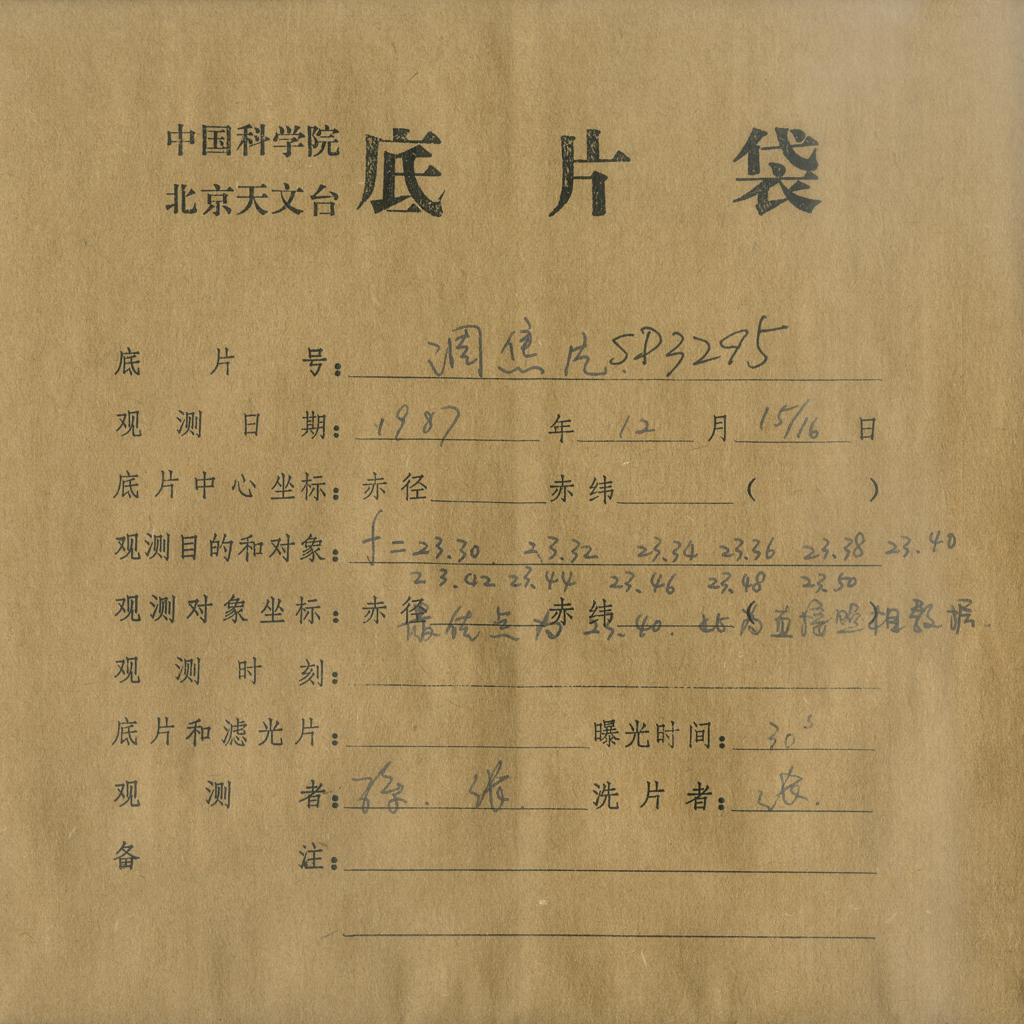 中国科学院
北京天文台
底片袋
底片号：调焦片SP3295
观测日期：1987年12月15/16日
底片中心坐标：赤径 赤纬 （ ）
观测目的和对象：f=23.30 23.32 23.34 23.36 23.38 23.40
23.42 23.44 23.46 23.48 23.50
观测对象坐标：赤径 赤纬 （ ）
最佳点为 23.40. 为直接照相数据.
观测时刻：
底片和滤光片： 曝光时间：30s
观测者： 张. 洗片者：张.
备注：